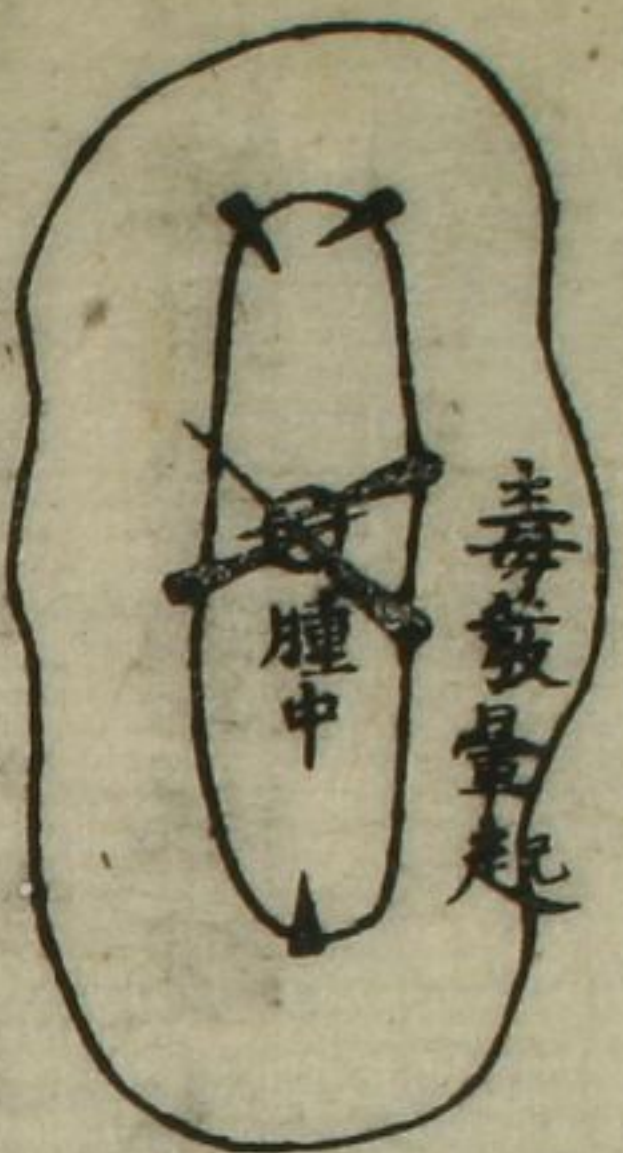 毒發暈起
腫中